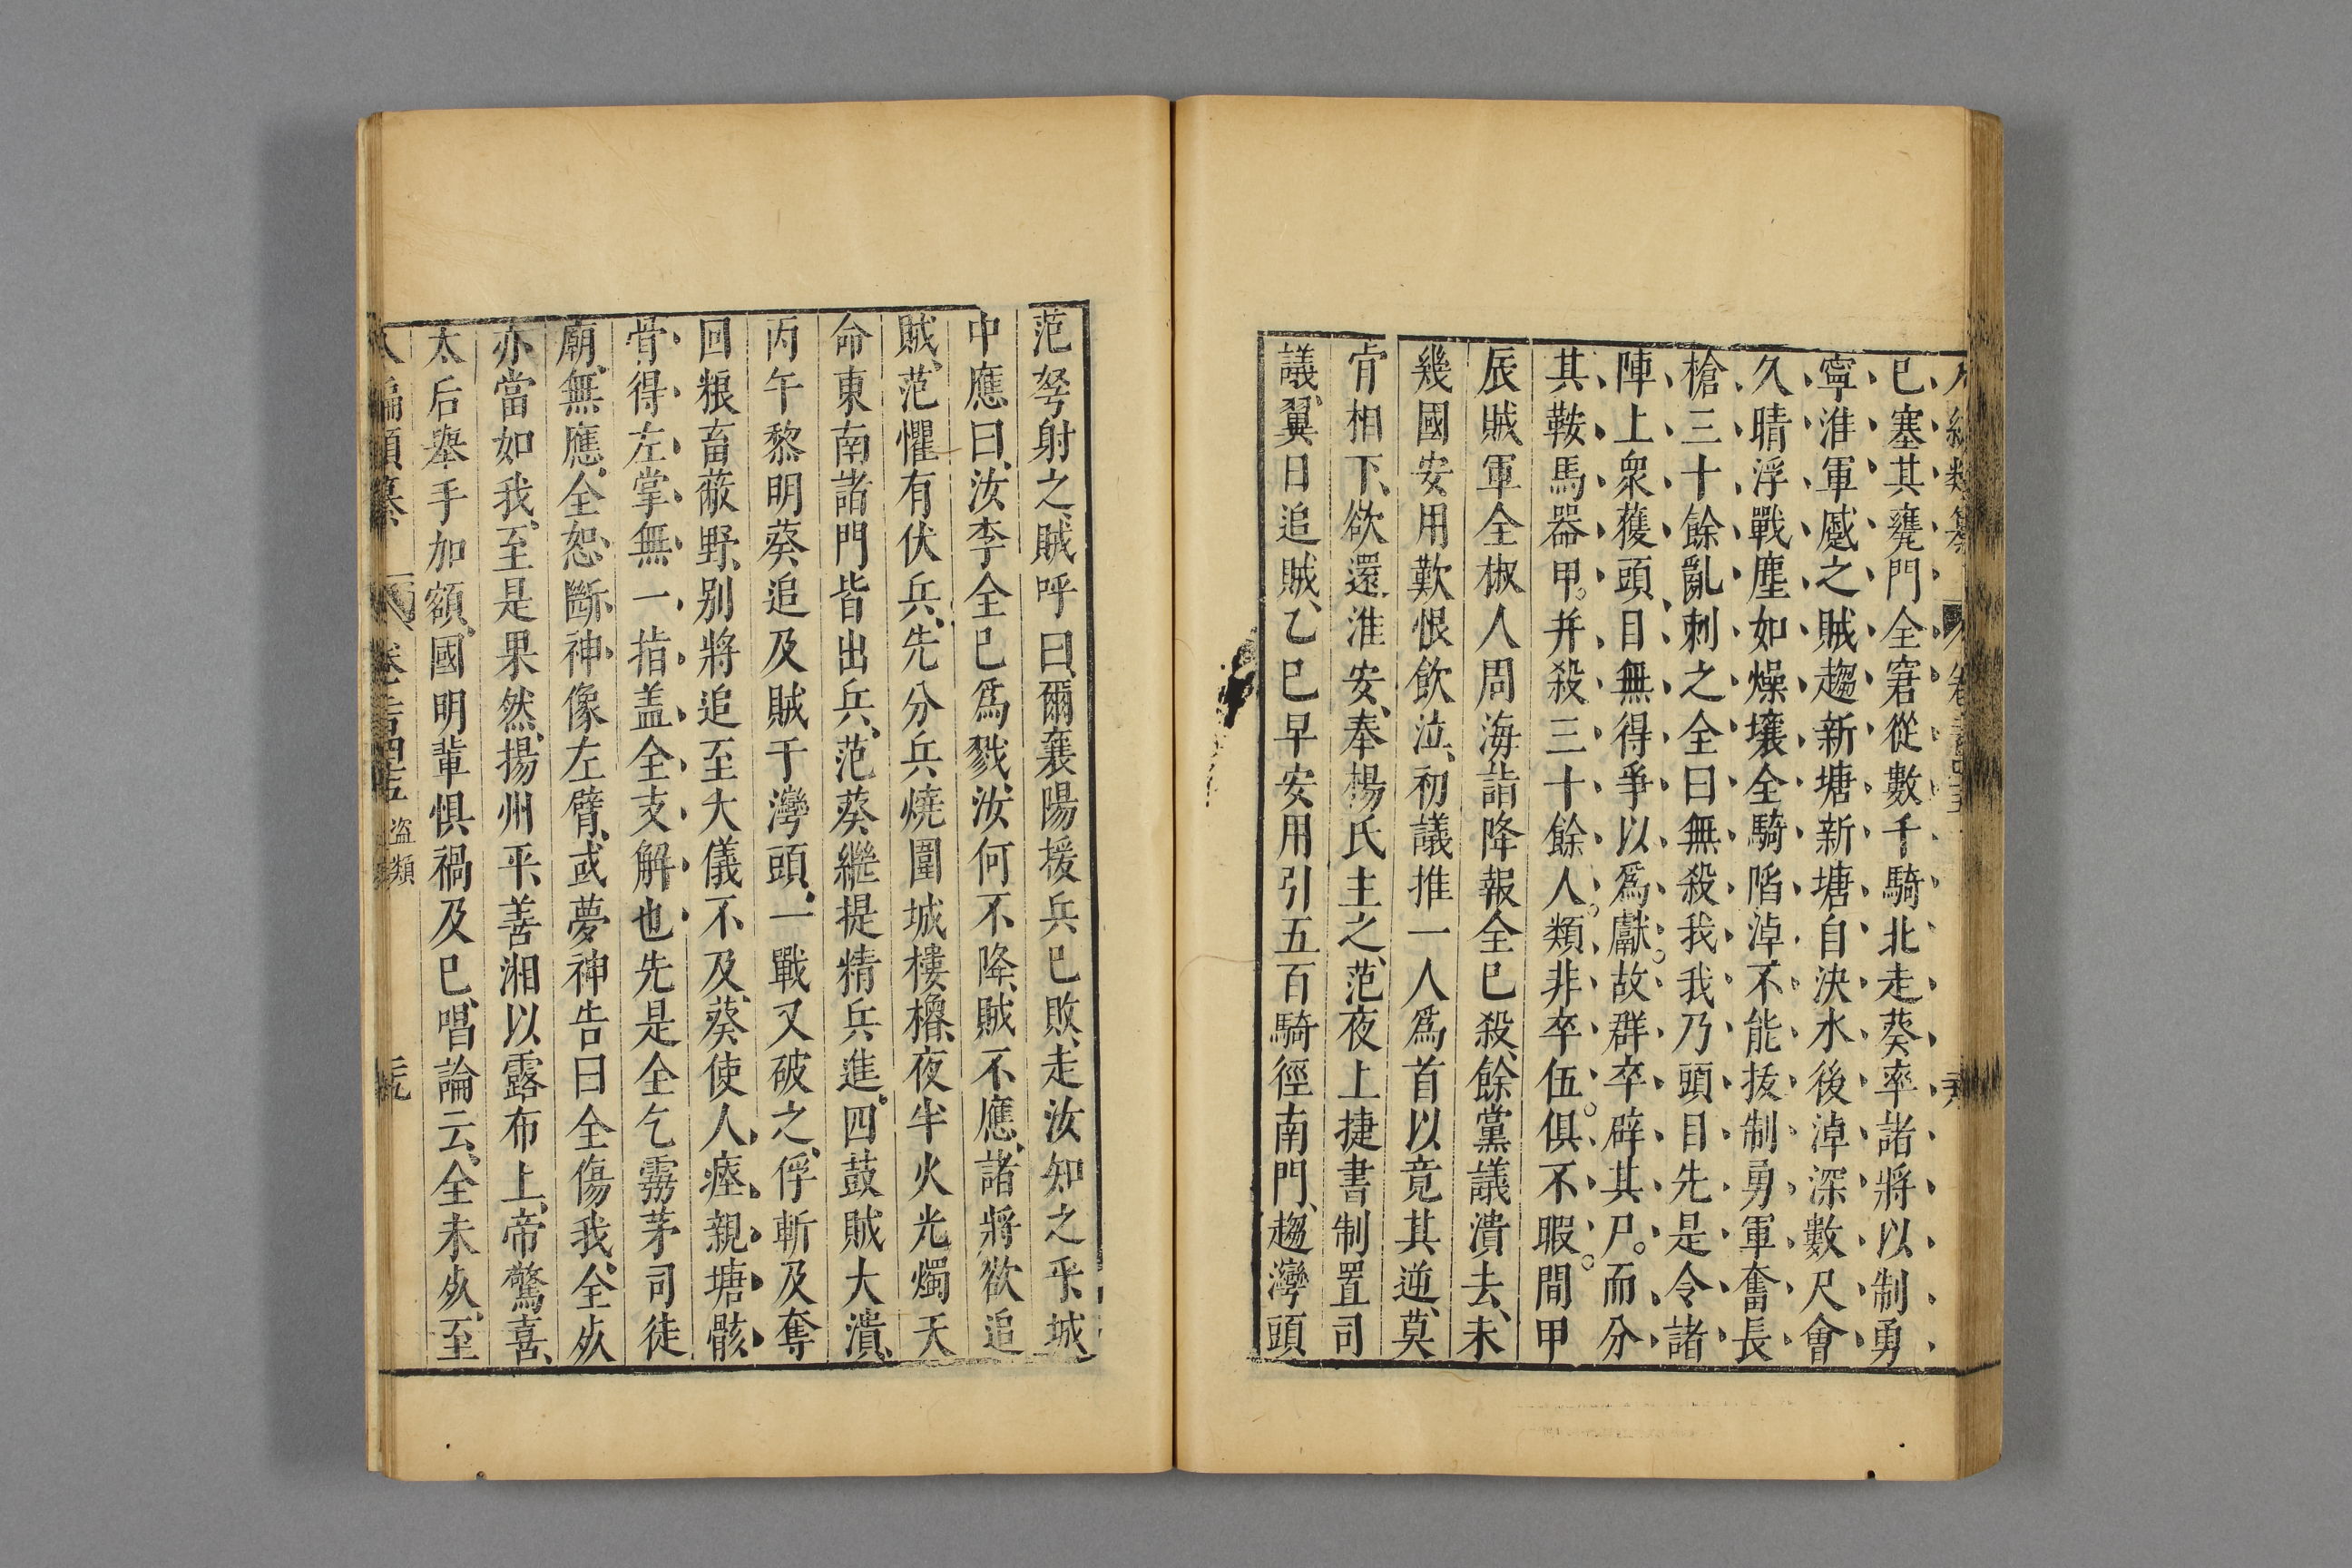 已塞其甕門全窘從數千騎北走葵率諸將以制勇
寧淮軍蹙之賊趨新塘新塘自決水後淖深數尺會
久晴浮戰塵如燥壤全騎陷淖不能拔制勇軍奮長
槍三十餘亂刺之全曰無殺我我乃頭目先是令諸
陣上衆獲頭目無得爭以爲獻。故群卒碎其尸。而分
其鞍馬器甲。并殺三十餘人。類非卒伍。俱不暇。間甲
辰賊軍全椒人周海詣降報全已殺、餘黨議潰去、未
幾國安用歎恨飲泣、初議推一人爲首以竟其逆、莫
肯相下、欲還淮安、奉楊氏主之、范夜上捷書制置司
議、翼日追賊、乙巳早安用引五百騎徑南門、趨灣頭
范弩射之、賊呼曰、爾襄陽援兵已敗、走汝知之乎、城
中應曰、汝李全已爲戮、汝何不降、賊不應、諸將欲追
賊、范懼有伏兵、先分兵燒圍城樓櫓、夜半火光燭天
命東南諸門皆出兵、范葵繼提精兵進。四鼓賊大潰、
丙午黎明葵追及賊于灣頭、一戰又破之、俘斬及奪
回粮畜蔽野、别將追至大儀不及、葵使人瘞親塘骸
骨得左掌無一指盖全支解也先是全乞靈茅司徒
廟、無應、全怒斷神像左臂、或夢神告曰全傷我、全㱔
亦當如我、至是果然、揚州平、善湘以露布上、帝驚喜、
太后舉手加額、國明輩惧禍及已、唱論云、全未㱔、至
編類纂
盗類